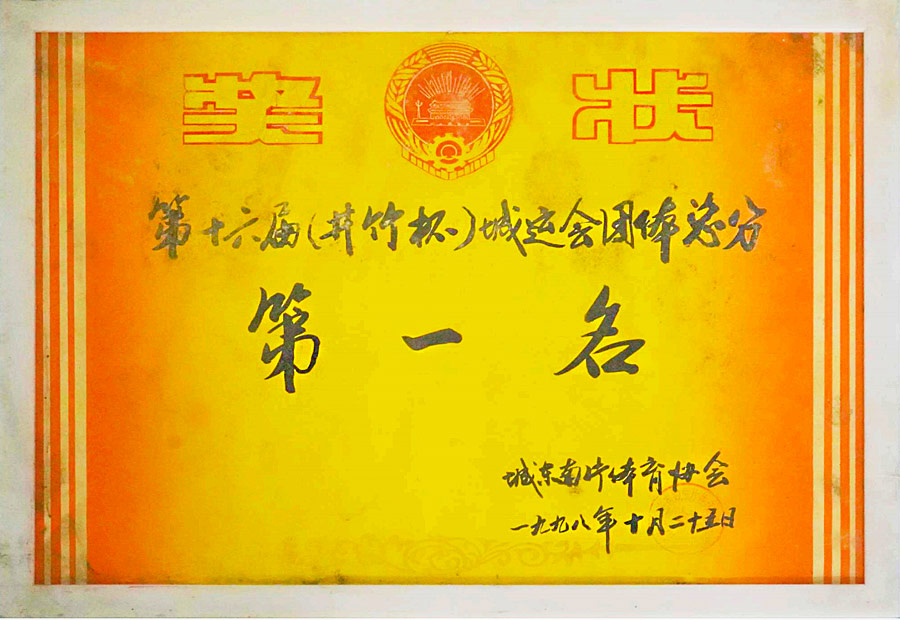 奖状
第十六届(井竹杯)城运会团体总分
第一名
城东南片体育协会
一九九八年十月二十五日